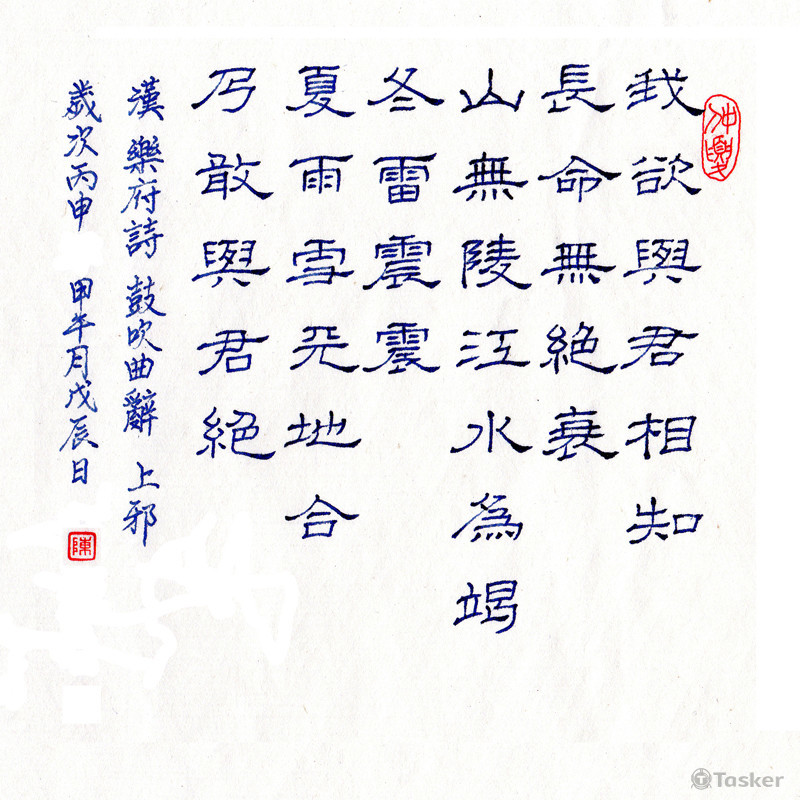 我欲與君相知
長命無絕衰
山無陵江水為竭
冬雷震震
夏雨雪天地合
乃敢與君絕
漢樂府詩 鼓吹曲辭 上邪
歲次丙申 甲午月戊辰日
陳
Tasker